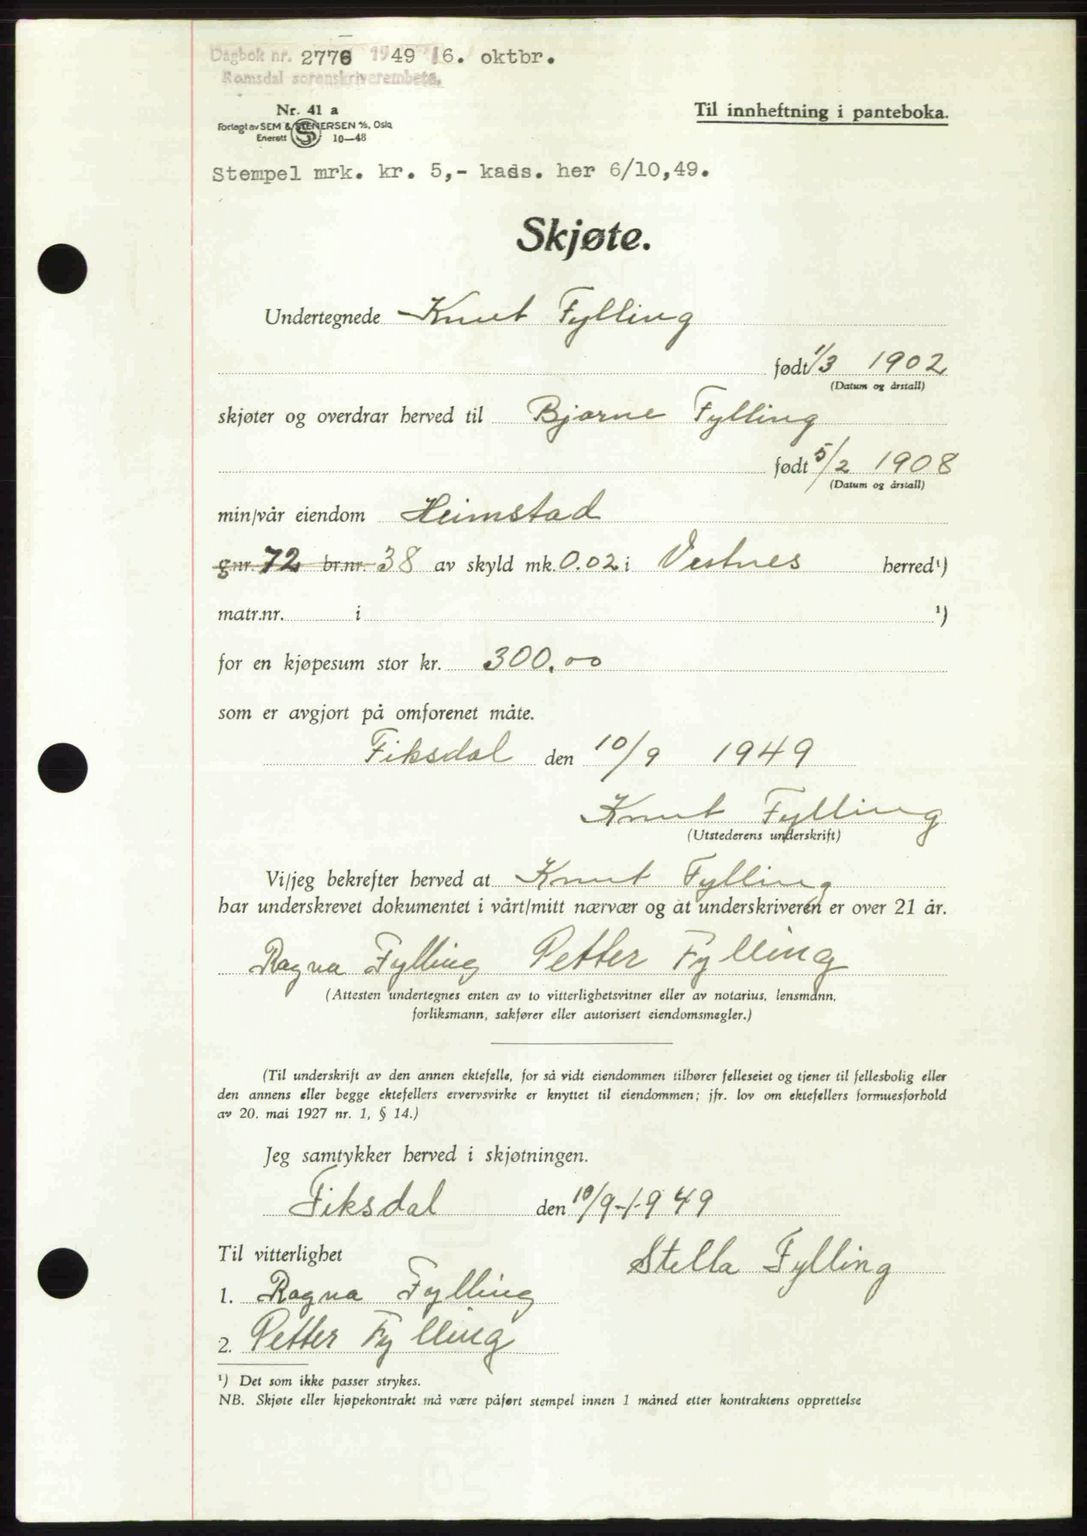 Dagbok nr. 2776 1949 6. oktbr.
Romsdal sorenskriverembete.
Nr. 41 a
Forlagt av SEM & STENERSEN A/S, Oslo
Enerett 10—48
Til innheftning i panteboka.
Stempel mrk. kr. 5,- kass. her 6/10,49.
Skjøte.
Undertegnede Knut Fylling
født 1/3 1902
(Datum og årstall)
skjøter og overdrar herved til Bjarne Fylling
født 5/2 1908
(Datum og årstall)
min/vår eiendom Heimstad
gnr. 72 br.nr. 38 av skyld mk. 0.02 i Vestnes herred¹)
matr.nr. i ¹)
for en kjøpesum stor kr. 300.00
som er avgjort på omforenet måte.
Fiksdal den 10/9 1949
Knut Fylling
(Utstederens underskrift)
Vi/jeg bekrefter herved at Knut Fylling
har underskrevet dokumentet i vårt/mitt nærvær og at underskriveren er over 21 år.
Ragna Fylling Petter Fylling
(Attesten undertegnes enten av to vitterlighetsvitner eller av notarius, lensmann,
forliksmann, sakfører eller autorisert eiendomsmegler.)
(Til underskrift av den annen ektefelle, for så vidt eiendommen tilhører felleseiet og tjener til fellesbolig eller
den annens eller begge ektefellers ervervsvirke er knyttet til eiendommen; jfr. lov om ektefellers formuesforhold
av 20. mai 1927 nr. 1, § 14.)
Jeg samtykker herved i skjøtningen.
Fiksdal den 10/9-1949
Til vitterlighet
Stella Fylling
1. Ragna Fylling
2. Petter Fylling
¹) Det som ikke passer strykes.
NB. Skjøte eller kjøpekontrakt må være påført stempel innen 1 måned etter kontraktens opprettelse